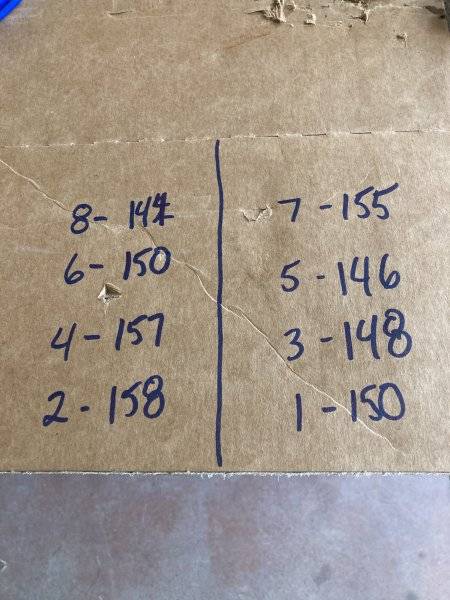 8- 144
6- 150
4- 157
2- 158
7-155
5-146
3-148
1-150